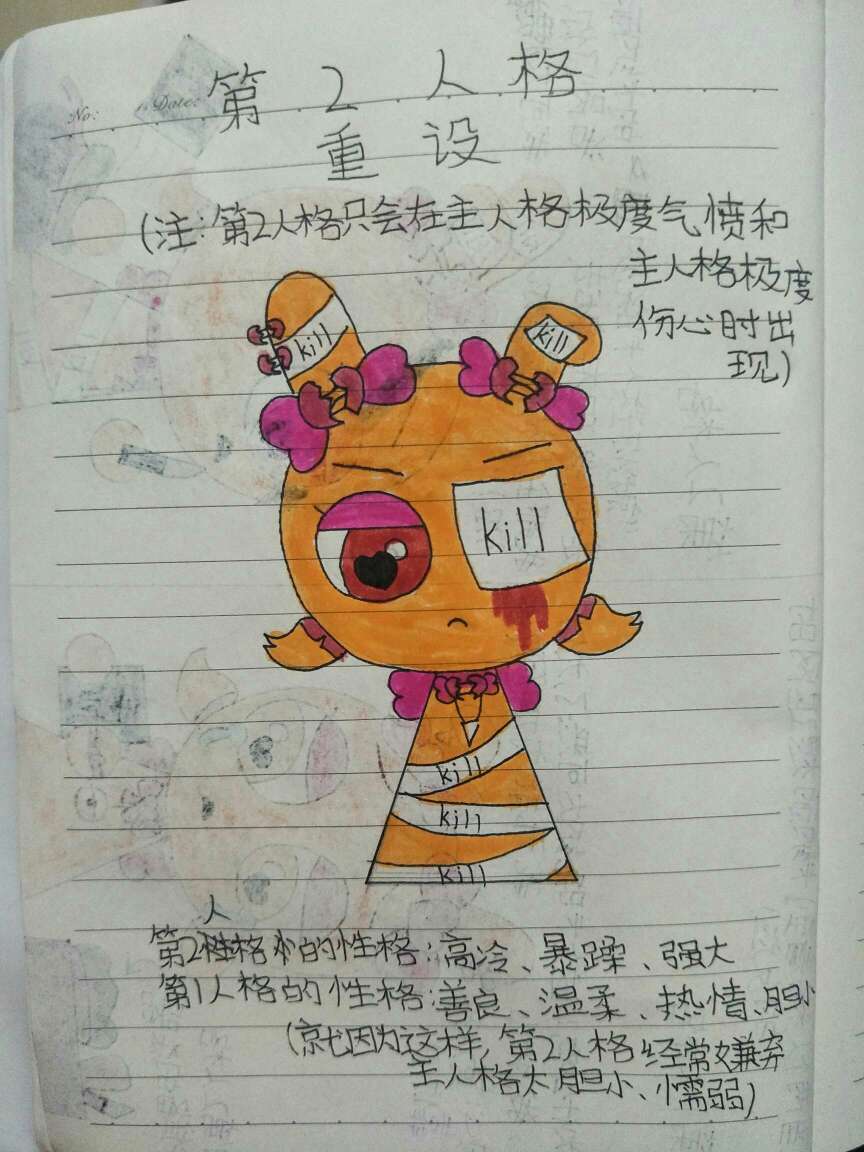 No: Date:
第2人格
重设
(注:第2人格只会在主人格极度气愤和
主人格极度
伤心时出
现)
kill
kill
kill
kill
kill
kill
人
第2性格的性格:高冷、暴蹂、强大
第1人格的性格:善良、温柔、热情、胆小
(就因为这样,第2人格经常嫌弃
主人格太胆小、懦弱)